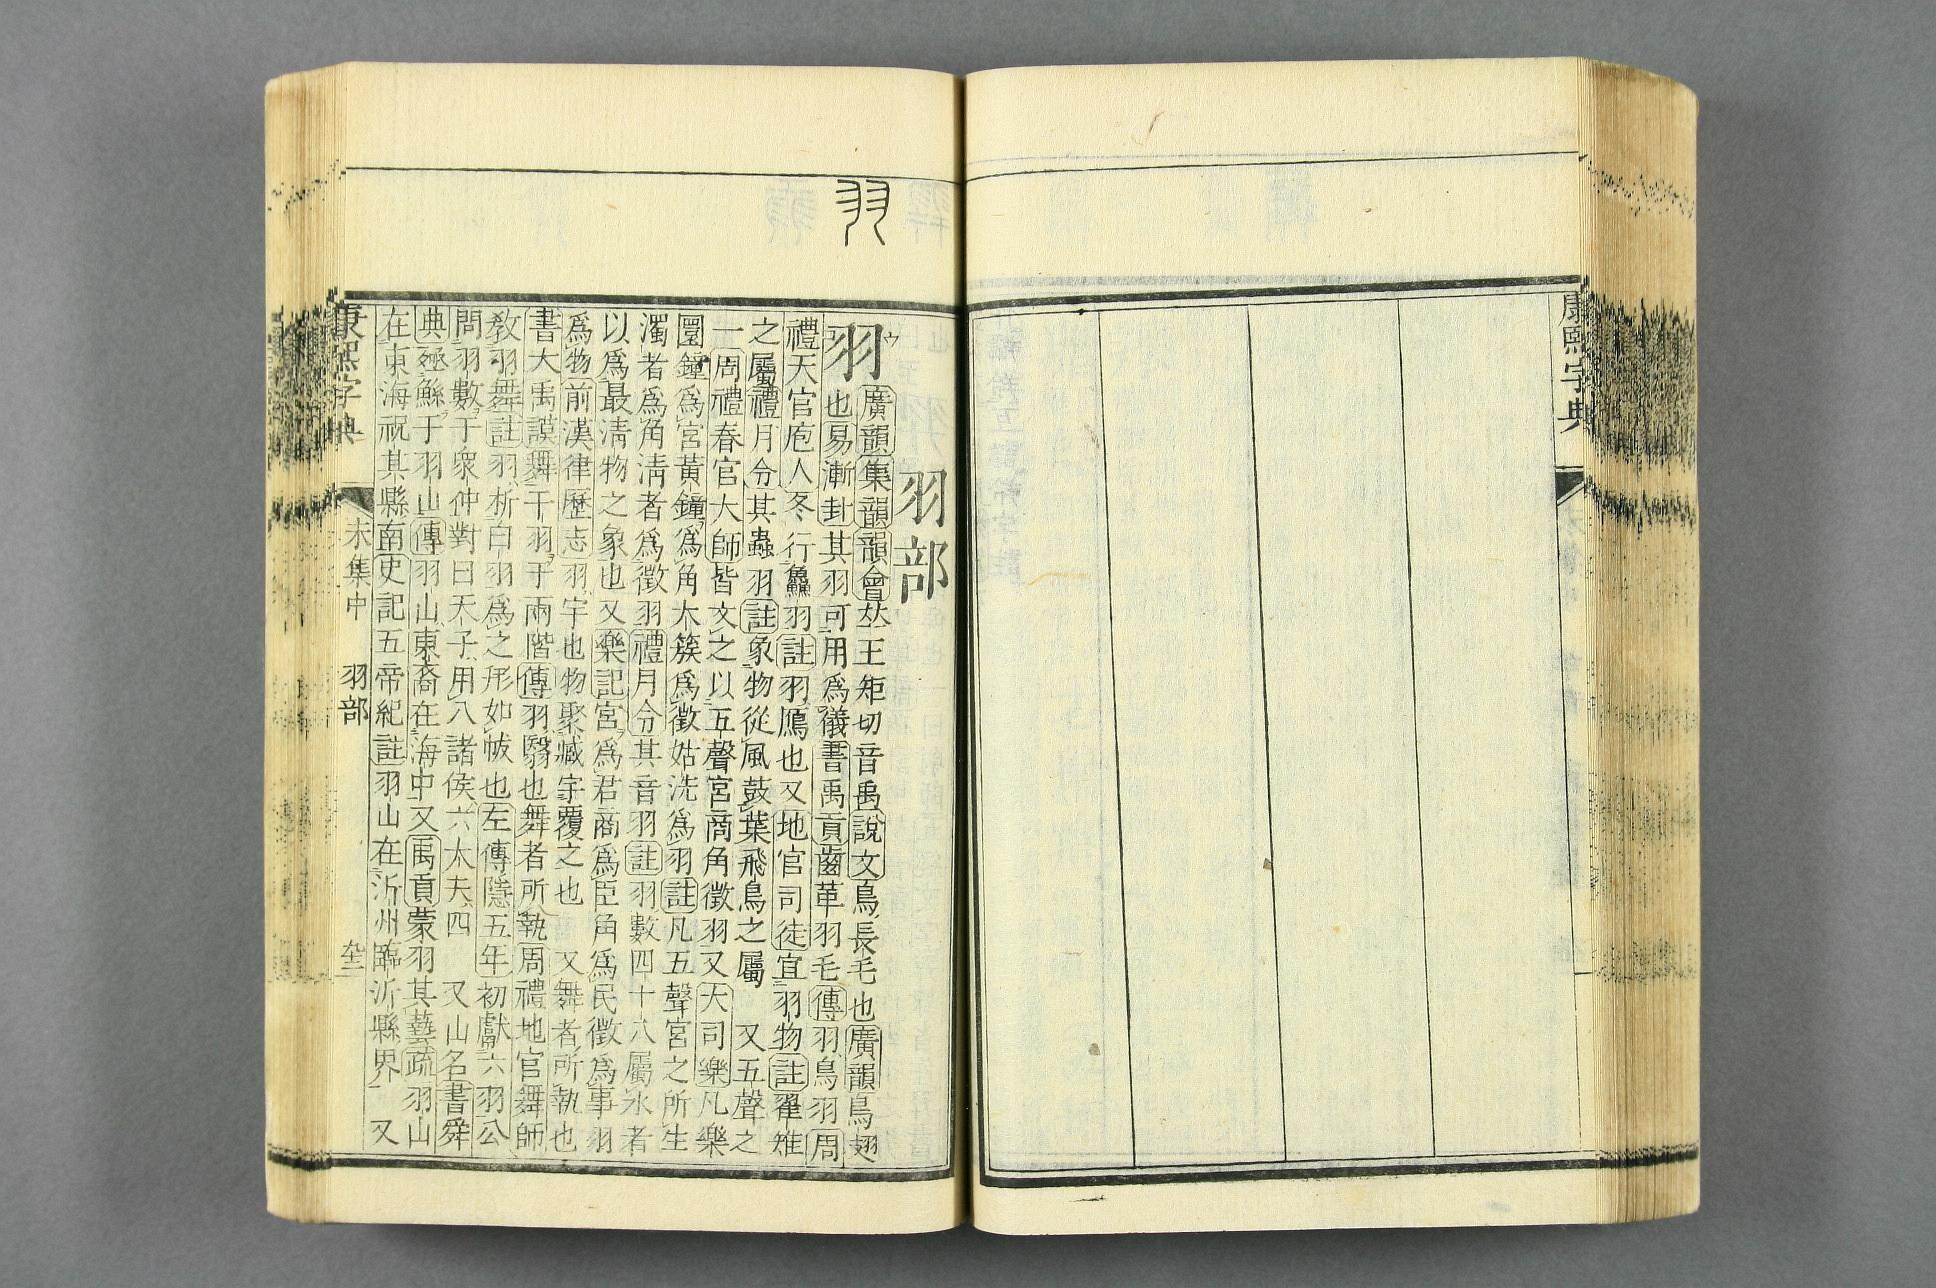 康熙字典
羽
羽部
羽
ウ
廣韻集韻韻會𠀤王矩切音禹說文鳥長毛也廣韻鳥翅
也易漸卦其羽可用爲儀書禹貢齒革羽毛傳羽鳥羽周
禮天官庖人冬行鱻羽註羽鴈也又地官司徒宜羽物註翟雉
之屬禮月令其蟲羽註象物從風鼓葉飛鳥之屬 又五聲之
一周禮春官大師皆文之以五聲宮商角徵羽又大司樂凡樂
圜鐘爲宮黃鐘爲角大簇爲徵姑洗爲羽註凡五聲宮之所生
濁者爲角淸者爲徵羽禮月令其音羽註羽數四十八屬水者
以爲最淸物之象也又樂記宮爲君商爲臣角爲民徵爲事羽
爲物前漢律歷志羽宇也物聚臧宇覆之也 又舞者所執也
書大禹謨舞干羽于兩階傳羽翳也舞者所執周禮地官舞師
敎羽舞註羽析白羽爲之形如帗也左傳隱五年初獻六羽公
問羽數于衆仲對曰天子用八諸侯六大夫四 又山名書舜
典殛鯀于羽山傳羽山東裔在海中又禹貢蒙羽其藝疏羽山
在東海祝其縣南史記五帝紀註羽山在沂州臨沂縣界 又
康熙字典
未集中
羽部